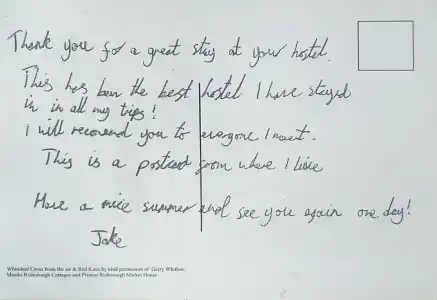 Thank you for a great stay at your hostel.
This has been the best hostel I have stayed
in in all my trips!
I will recomend you to everyone I meet.
This is a postcard from where I live
Have a nice summer and see you again one day!
Jake
Whiteleaf Cross from the air & Red Kites by kind permission of Gerry Whitlow.
Monks Risborough Cottages and Princes Risborough Market House